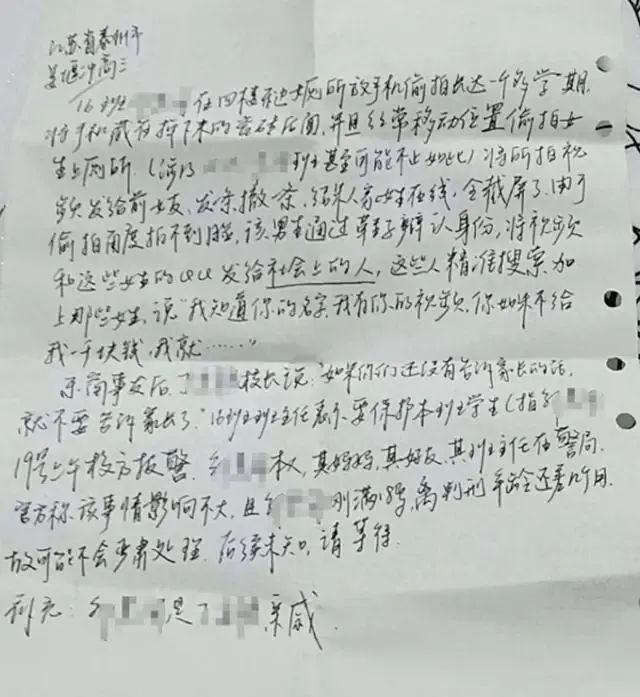 江苏省泰州市
姜堰中高三
16班 在四楼东边女厕所放手机偷拍长达一个多学期,
将手机藏在掉下来的瓷砖后面,并且经常移动位置偷拍女
生上厕所.(涉及 班甚至可能不止如此)将所拍视
频发给前女友,发亲戚亲,给某人前女生在线,全截屏了.由于
偷拍角度拍不到脸,该男生通过鞋子辨认身份,将视频
和这些女生的QQ发给社会上的人,这些人精准搜索加
上那些女生,说"我知道你的名字,我有你的视频,你如果不给
我一千块钱,我就……"
东窗事发后,丁 校长说:"如果你们还没有告诉家长的话,
就不要告诉家长了."16班班主任表示要保护本班学生(指
19号上午校方报警, 本人,其妈妈,其好友,其班主任在警局.
官方称该事情影响不大,且 刚满 ,离判刑年龄还差几个月.
故可能不会严肃处理.后续未知,请等待.
补充: 是丁 亲戚.